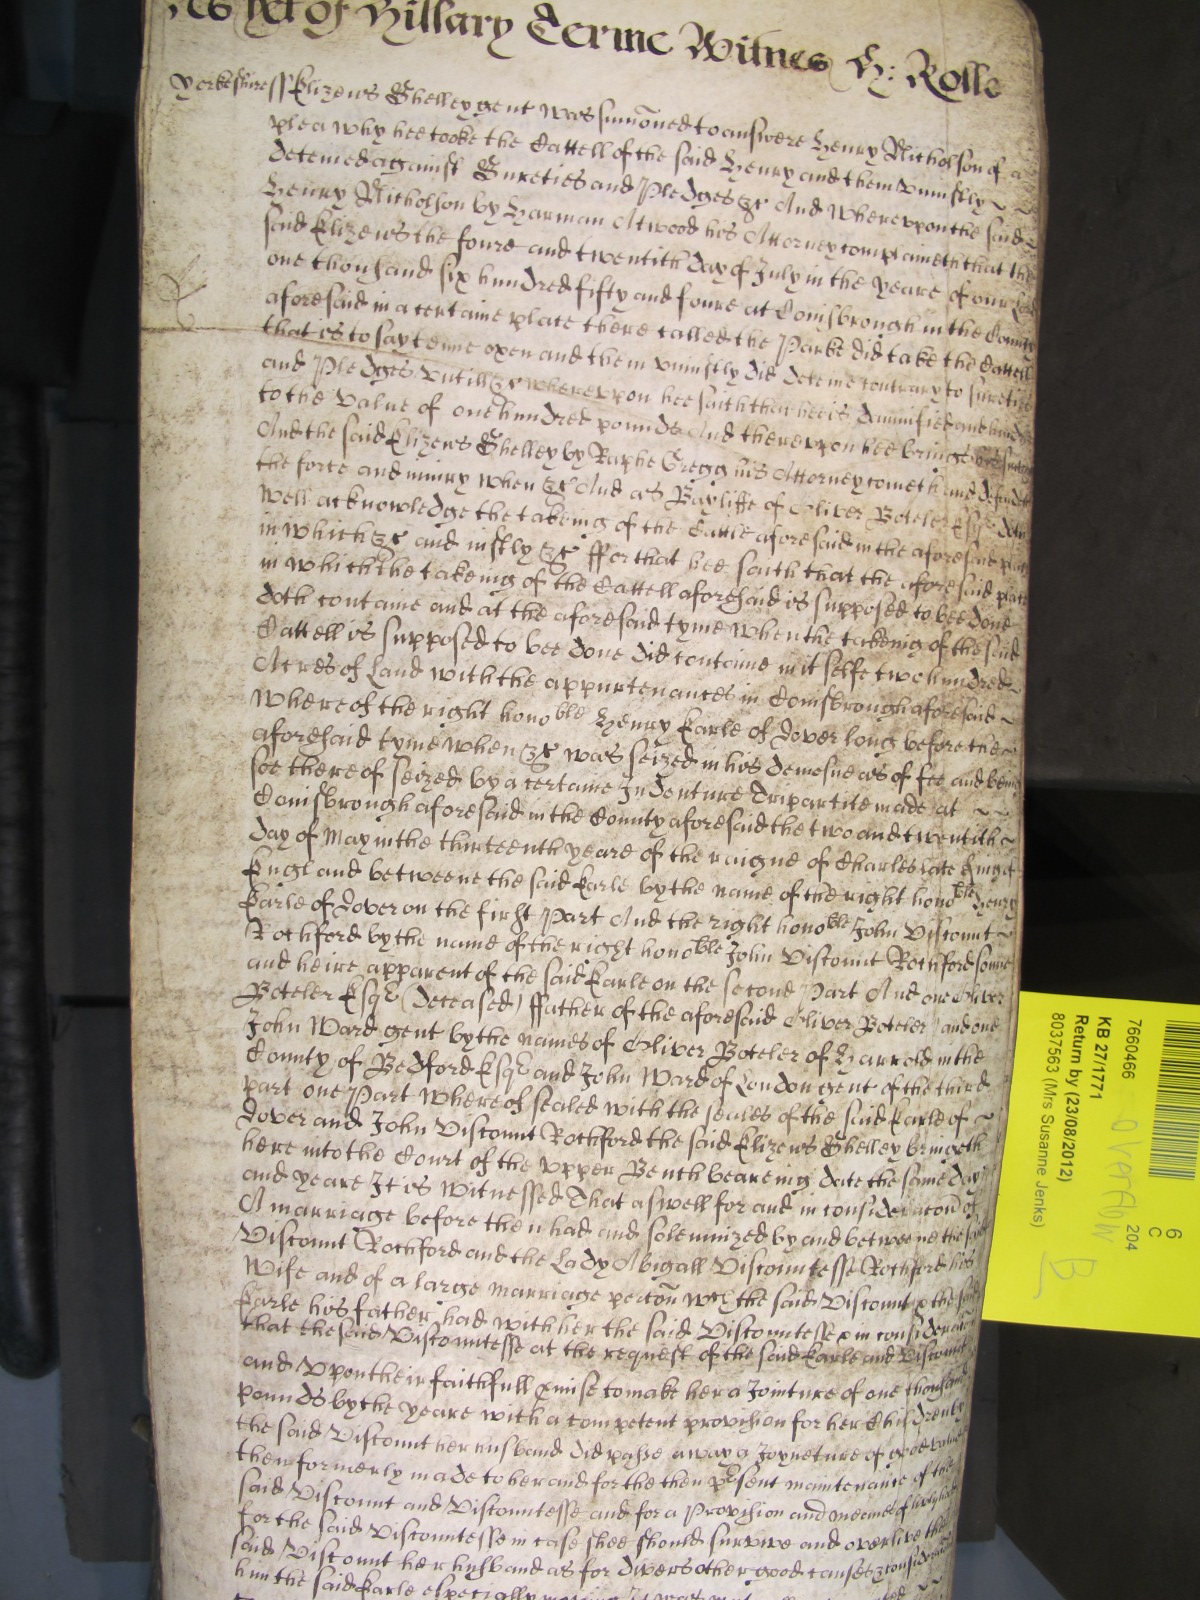 yet of Hillary Terme Witnes H: Rolle
Yorkeshire ss Elizeus Shelley gent was sumoned to answere Henry Nicholson of a
plea why hee tooke the Cattell of the said Henry and them vniustly
deteined against Sureties and Pledges &c And wherevpon the said
Henry Nicholson by Harman Atwood his Attorney complaineth that the
said Elizeus the foure and twentith day of July in the yeare of our Lord
one thousand six hundred fifty and foure at Conisbrough in the County
aforesaid in a certaine place there called the Parke did take the Cattell
that is to say tenne oxen and them vniustly did deteine contrary to sureties
and Pledges vntill &c wherevpon hee saith that hee is damnified and hindred
to the value of one hundred pounds And therevpon hee bringeth his suite
And the said Elizeus Shelley by Raphe Gregg his Attorney cometh and defendeth
the force and iniury when &c And as Bayliffe of Oliver Boteler Esqr doth
well acknowledge the takeing of the Cattle aforesaid in the aforesaid place
in which &c and iustly &c ffor that hee saith that the aforesaid place
in which the takeing of the Cattell aforesaid is supposed to bee done
doth containe and at the aforesaid tyme when the takeing of the said
Cattell is supposed to bee done did containe in it selfe two hundred
Acres of Land with the appurtenances in Conisbrough aforesaid
whereof the right honoble Henry Earle of Dover long before the
aforesaid tyme when &c was seized in his demesne as of fee and being
soe thereof seized by a certaine Indenture Tripartite made at
Conisbrough aforesaid in the County aforesaid the two and twentith
day of May in the thirteenth yeare of the raigne of Charles late King of
England betweene the said Earle by the name of the right honoble Henry
Earle of Dover on the first Part And the right honoble John Viscount
Rochford by the name of the right honoble John Viscount Rochford sonne
and heire apparent of the said Earle on the second Part And one Oliver
Boteler Esqr (deceased) ffather of the aforesaid Oliver Boteler and one
John Ward gent by the names of Oliver Boteler of Harrold in the
County of Bedford Esqr and John Ward of London gent of the third
part one Part whereof sealed with the seales of the said Earle of
Dover and John Viscount Rochford the said Elizeus Shelley bringeth
here into the Court of the vpper Bench beareing date the same day
and yeare It is Witnessed That aswell for and in consideracon of
A marriage before then had and solemnized by and betweene the said
Viscount Rochford and the Lady Abigall Viscountesse Rochford his
Wife and of a large marriage porcon wch the said Viscount & the said
Earle his father had with her the said Viscountesse & in consideracon
that the said Viscountesse at the request of the said Earle and Viscount
and Vpon their faithfull pmise to make her a Jointure of one thousand
pounds by the yeare with a competent provision for her Children by
the said Viscount her husband did passe away a Joyneture of good value
then formerly made to her and for the then present maintenance of the
said Viscount and Viscountesse and for a Provision and meanes of livelyhood
for the said Viscountesse in case shee should survive and overlive the
said Viscount her husband as for divers other good causes & consideracons
him the said Earle especially moving It was
7660466
KB 27/1771
Return by (23/08/2012)
8037563 (Mrs Susanne Jenks)
6
C
204